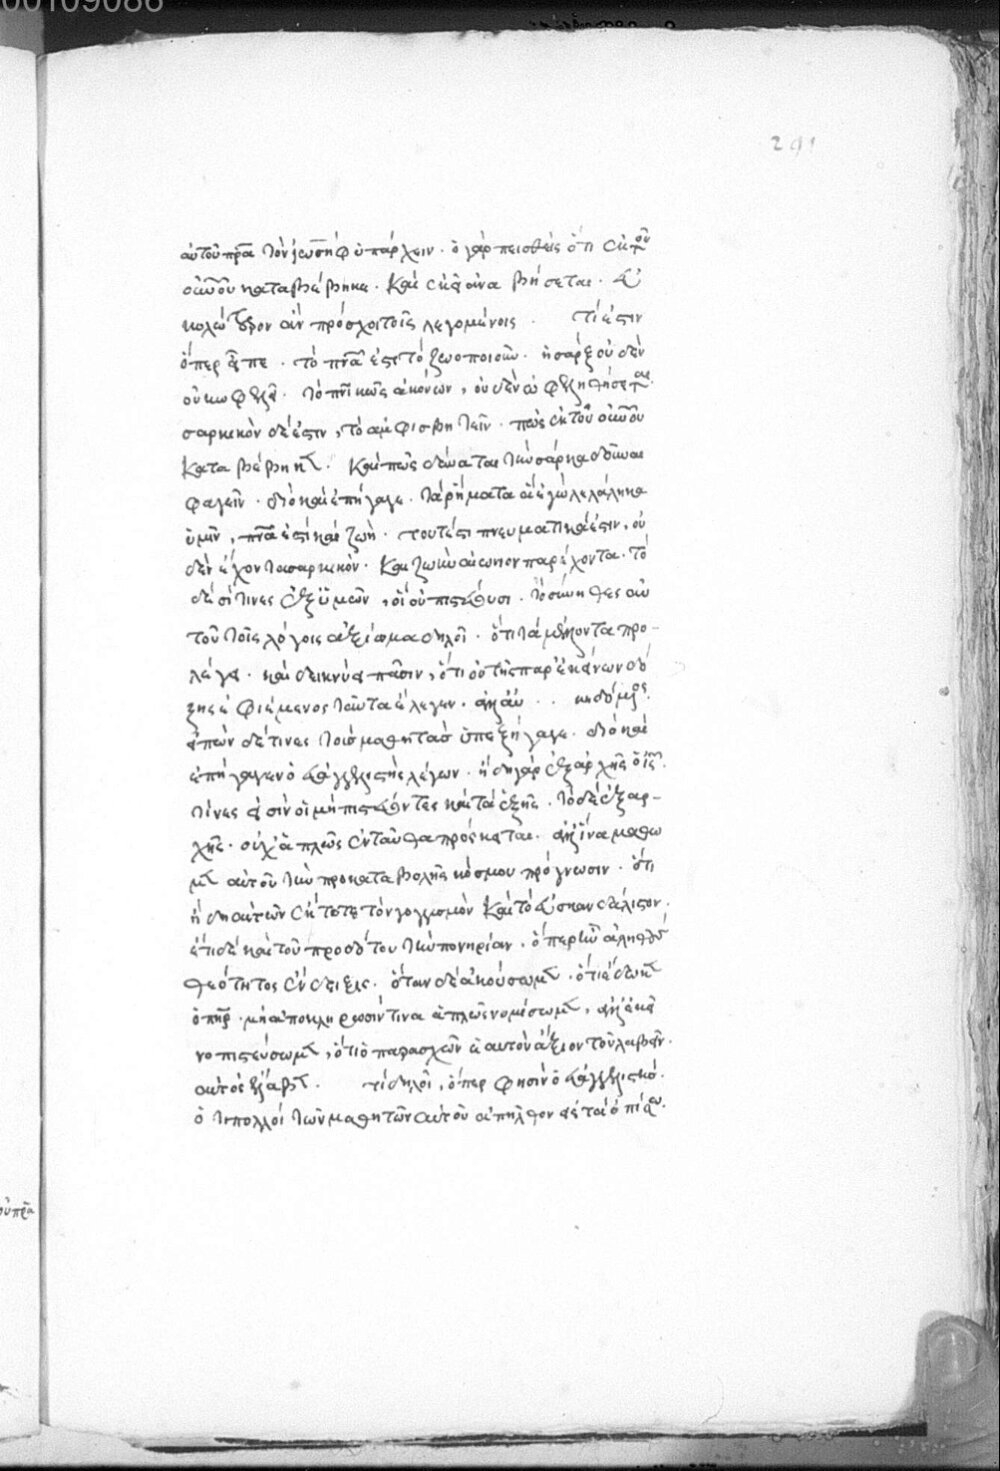 00109086
291
αὐτοῦ πρᾶ τὸν ἰωσὴφ ὑπάρχειν · ὁ γὰρ πεισθεὶς ὅτι ἐκ τ(ὸν)
οὐνοῦ καταβέβηκε · καὶ ἐκεῖ ἀνα βήσεται ·
κολώτερον ἂν πρόσχοι τοῖς λεγομένοις · τί ἐστιν
ὅπερ εἶπε · τὸ πνᾶ ἐστὶ τὸ ζωοποιοῦν · ἡ σὰρξ οὐδὲν
οὐκ ὠφελεῖ · τὸ πνικῶς ἀκούων , οὐδὲν ὠφεληθήσεται ·
σαρκικὸν δέ ἐστιν , τὸ ἀμφισβητεῖν · πῶς ἐκ τοῦ οὐνοῦ
καταβέβηκε · καὶ πῶς δύναται τὴν σάρκα δοῦναι
φαγεῖν · διὸ καὶ ἐπήγαγε · τὰ ῥήματα ἃ ἐγὼ λελάληκα
ὑμῖν , πνᾶ ἐστὶ καὶ ζωὴ · τουτέστι πνευματικά ἐστιν , οὐ
δὲν ἔχοντα σαρκικὸν · καὶ ζωὴν αἰώνιον παρέχοντα · τὸ
δέ εἰσί τινες ἐξ ὑμῶν , οἳ οὐ πιστεύουσι · τὸ σύνηθες αὐ
τοῦ τοῖς λόγοις ἀξίωμα δηλοῖ · ὅτι τὰ μέλλοντα προ-
λέγει · καὶ δείκνυσι πᾶσιν , ὅτι οὐ τῆς παρ' ἐκείνων δό
ξης ἐφιέμενος ταῦτα ἔλεγεν · ἀλλ' αὐ · · κηδόμενος ·
εἰπὼν δέ τινες τοὺς μαθητὰς ὑπεξήγαγε · διὸ καὶ
ἐπήγαγεν ὁ εὐαγγελιστὴς λέγων · ἤδει γὰρ ἐξ ἀρχῆς ὁ ἰς ·
τίνες εἰσὶν οἱ μὴ πιστεύοντες καὶ τὰ ἑξῆς · τὸ δὲ ἐξ ἀρ-
χῆς · οὐχ ἁπλῶς ἐνταῦθα πρόσκειται · ἀλλ' ἵνα μάθω
μεν αὐτοῦ τὴν πρὸ καταβολῆς κόσμου πρόγνωσιν · ὅτι
ἤδει αὐτῶν ἐκ τότε τὸν γογγυσμὸν καὶ τὸ εὐσκανδάλιστον ·
ἔτι δὲ καὶ τοῦ προδότου τὴν πονηρίαν · ὅπερ ἦν ἀληθοῦς
θεότητος ἔνδειξις · ὅταν δὲ ἀκούσωμεν · ὅτι ἔδωκεν
ὁ πηρ · μὴ ἀποκληρωσίν τινα ἁπλῶς νομίσωμεν , ἀλλ' ἐκεῖ
νο πιστεύσωμεν , ὅτι ὁ παρασχὼν ἑαυτὸν ἄξιον τοῦ λαβεῖν ·
αὐτὸς ἔλαβεν · τί δηλοῖ , ὅπερ φησὶν ὁ εὐαγγελιστὴς ·
ὅτι πολλοὶ τῶν μαθητῶν αὐτοῦ ἀπῆλθον εἰς τὰ ὀπίσω ·